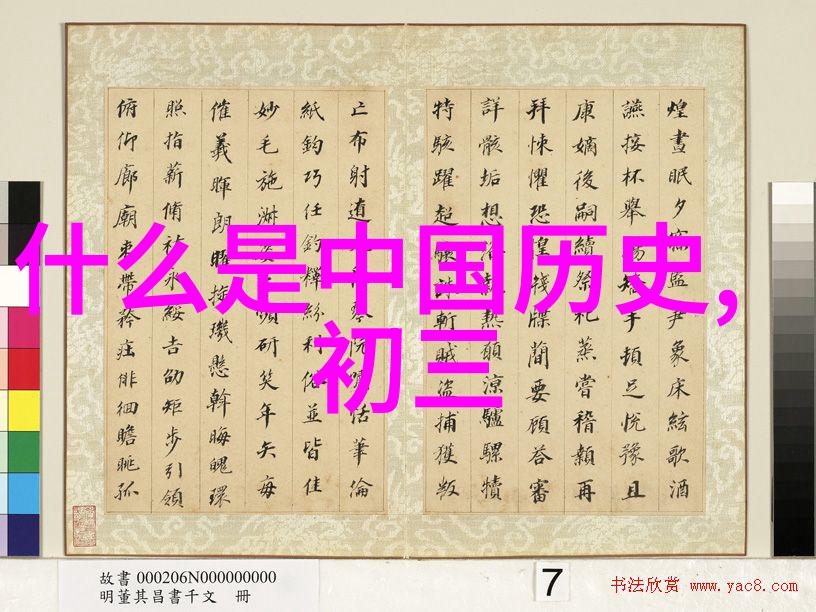 什么是中国历史,
初三
煌晝眠夕寐藍笋象床絃歌酒
讌接杯舉觴矯手頓足悅豫且
康嫡後嗣續祭祀蒸嘗稽顙再
拜悚懼恐惶牋牒簡要顧答審
詳骸垢想浴執熱願涼驢騾犢
特駭躍超驤誅斬賊盜捕獲叛
亡布射遼琴阮嘯恬筆倫
紙鈞巧任釣釋紛利俗並皆佳
妙毛施淑姿顰妍笑年矢每
催羲暉朗曜旋璣懸斡晦魄環
照指薪脩祜永綏吉劭矩步引領
俯仰廊廟束帶矜莊徘徊瞻眺孤
故書 000206N000000000
明董其昌書千文 冊
7
书法欣赏 www.yac8.com